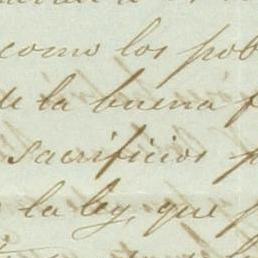 como los pob
de la buena f
sacrificios p
la ley, que p